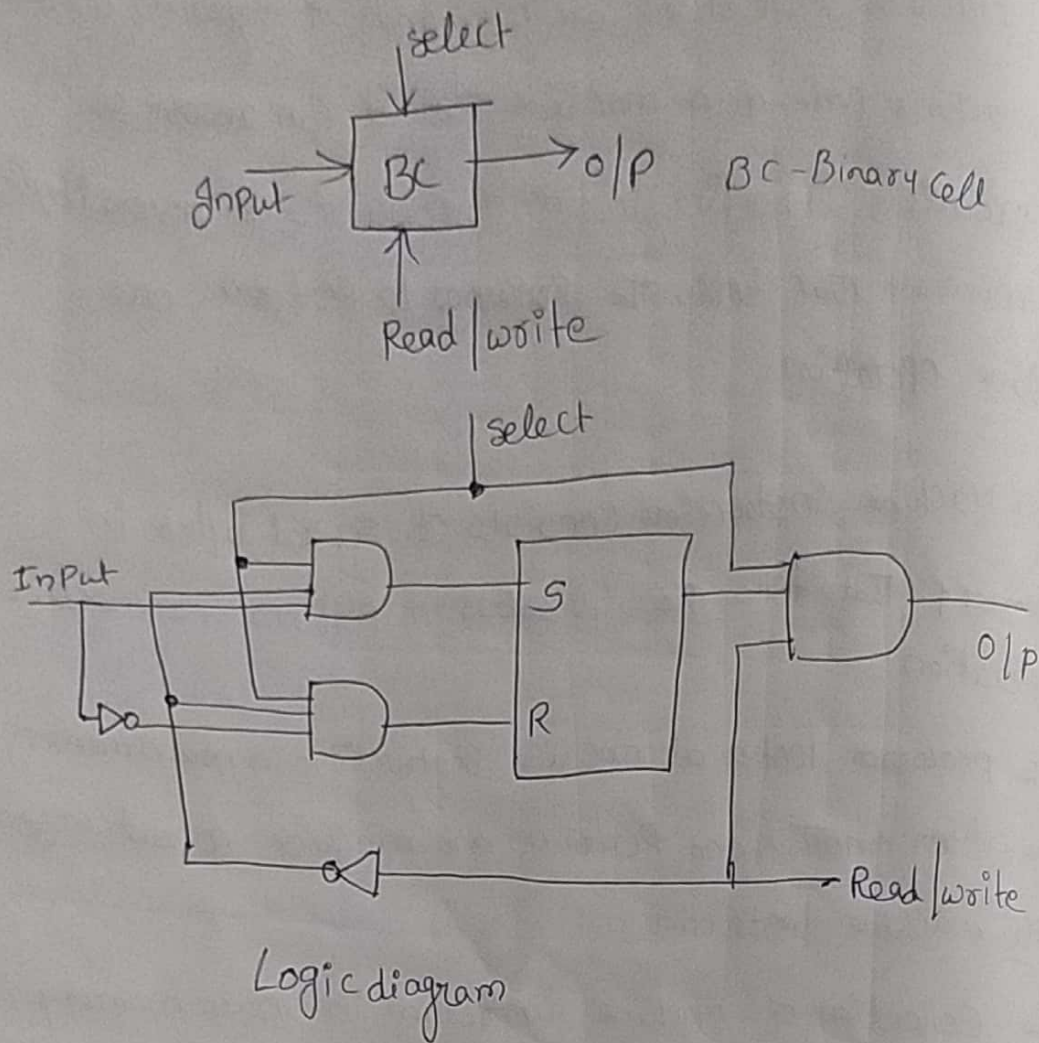 select
Input
BC
O/P
BC-Binary Cell
Read/write
select
Input
S
O/P
R
Read/write
Logic diagram